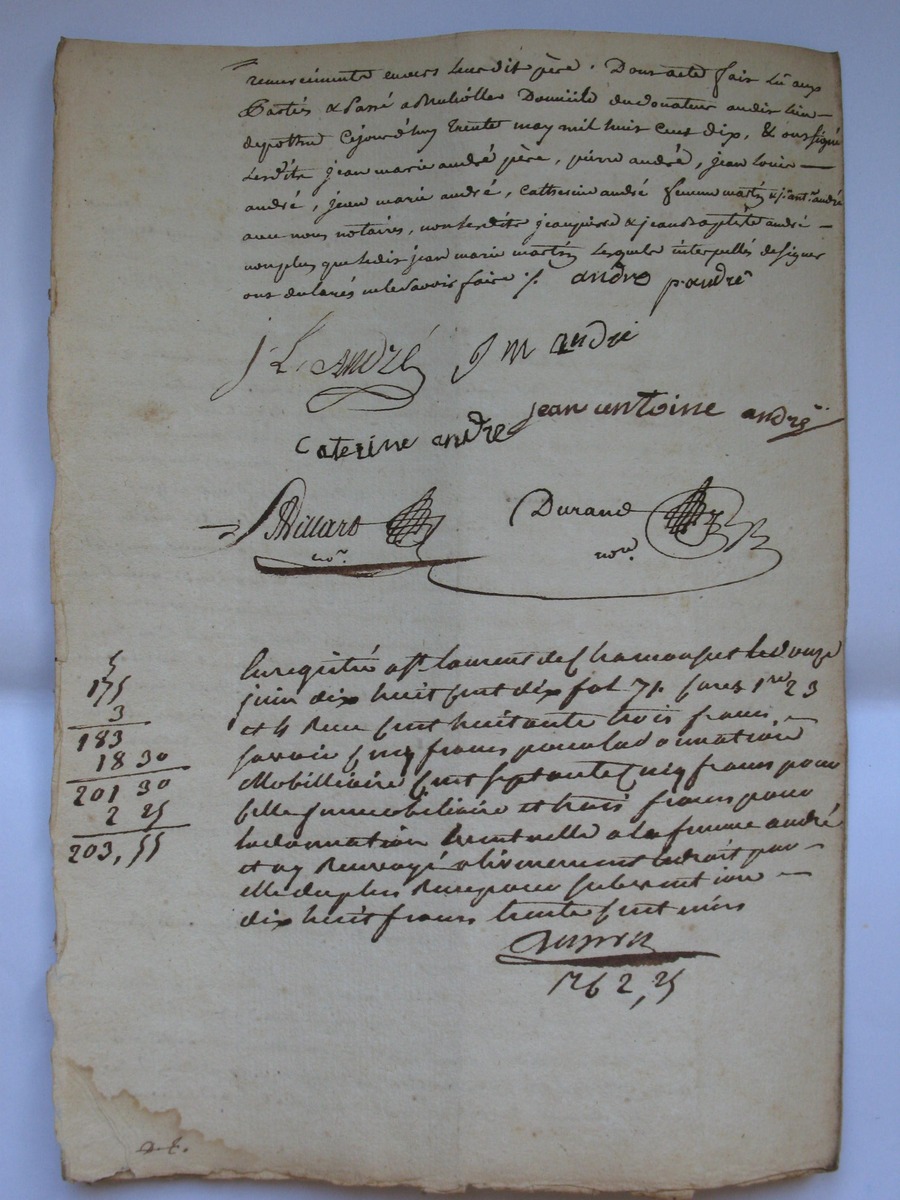 remerciments envers leurdit père. Dont acte fait Lû aux
Parties & Passé a Domicile du donateur audit lieu
Cejourd'huy trente may mil huit cent dix, & ont signé
Lesdits jean marie andré père, pierre andré, jean Louis
andré, jean marie andré, Catherine andré femme martin & jn antne andré
avec nous notaires, non lesdits jeanpierre & jean Baptiste andré
nonplus que ledit jean marie martin Lesquels interpellés de signer
ont déclarés ne le Savoir faire ./. andre p andré
j L André J M andré
jean antoine andre
Caterine andre
Billard Durand
nore. nore.
Enregistré a st Laurent de Chamousset le douze
juin dix huit cent dix fol 71. Cases 1re 2 3
et 4 Recu cent huitante trois francs,
savoir cinq francs pour la donation
Mobilliaire cent septante cinq francs pour
celle immobiliaire et trois francs pour
la donnation eventuelle a la femme andré
et ay Renvoyé
plus Recu pour subvention
dix huit francs trente centimes
5
175
3
183
18 30
201 30
2 25
203,55
1762,25